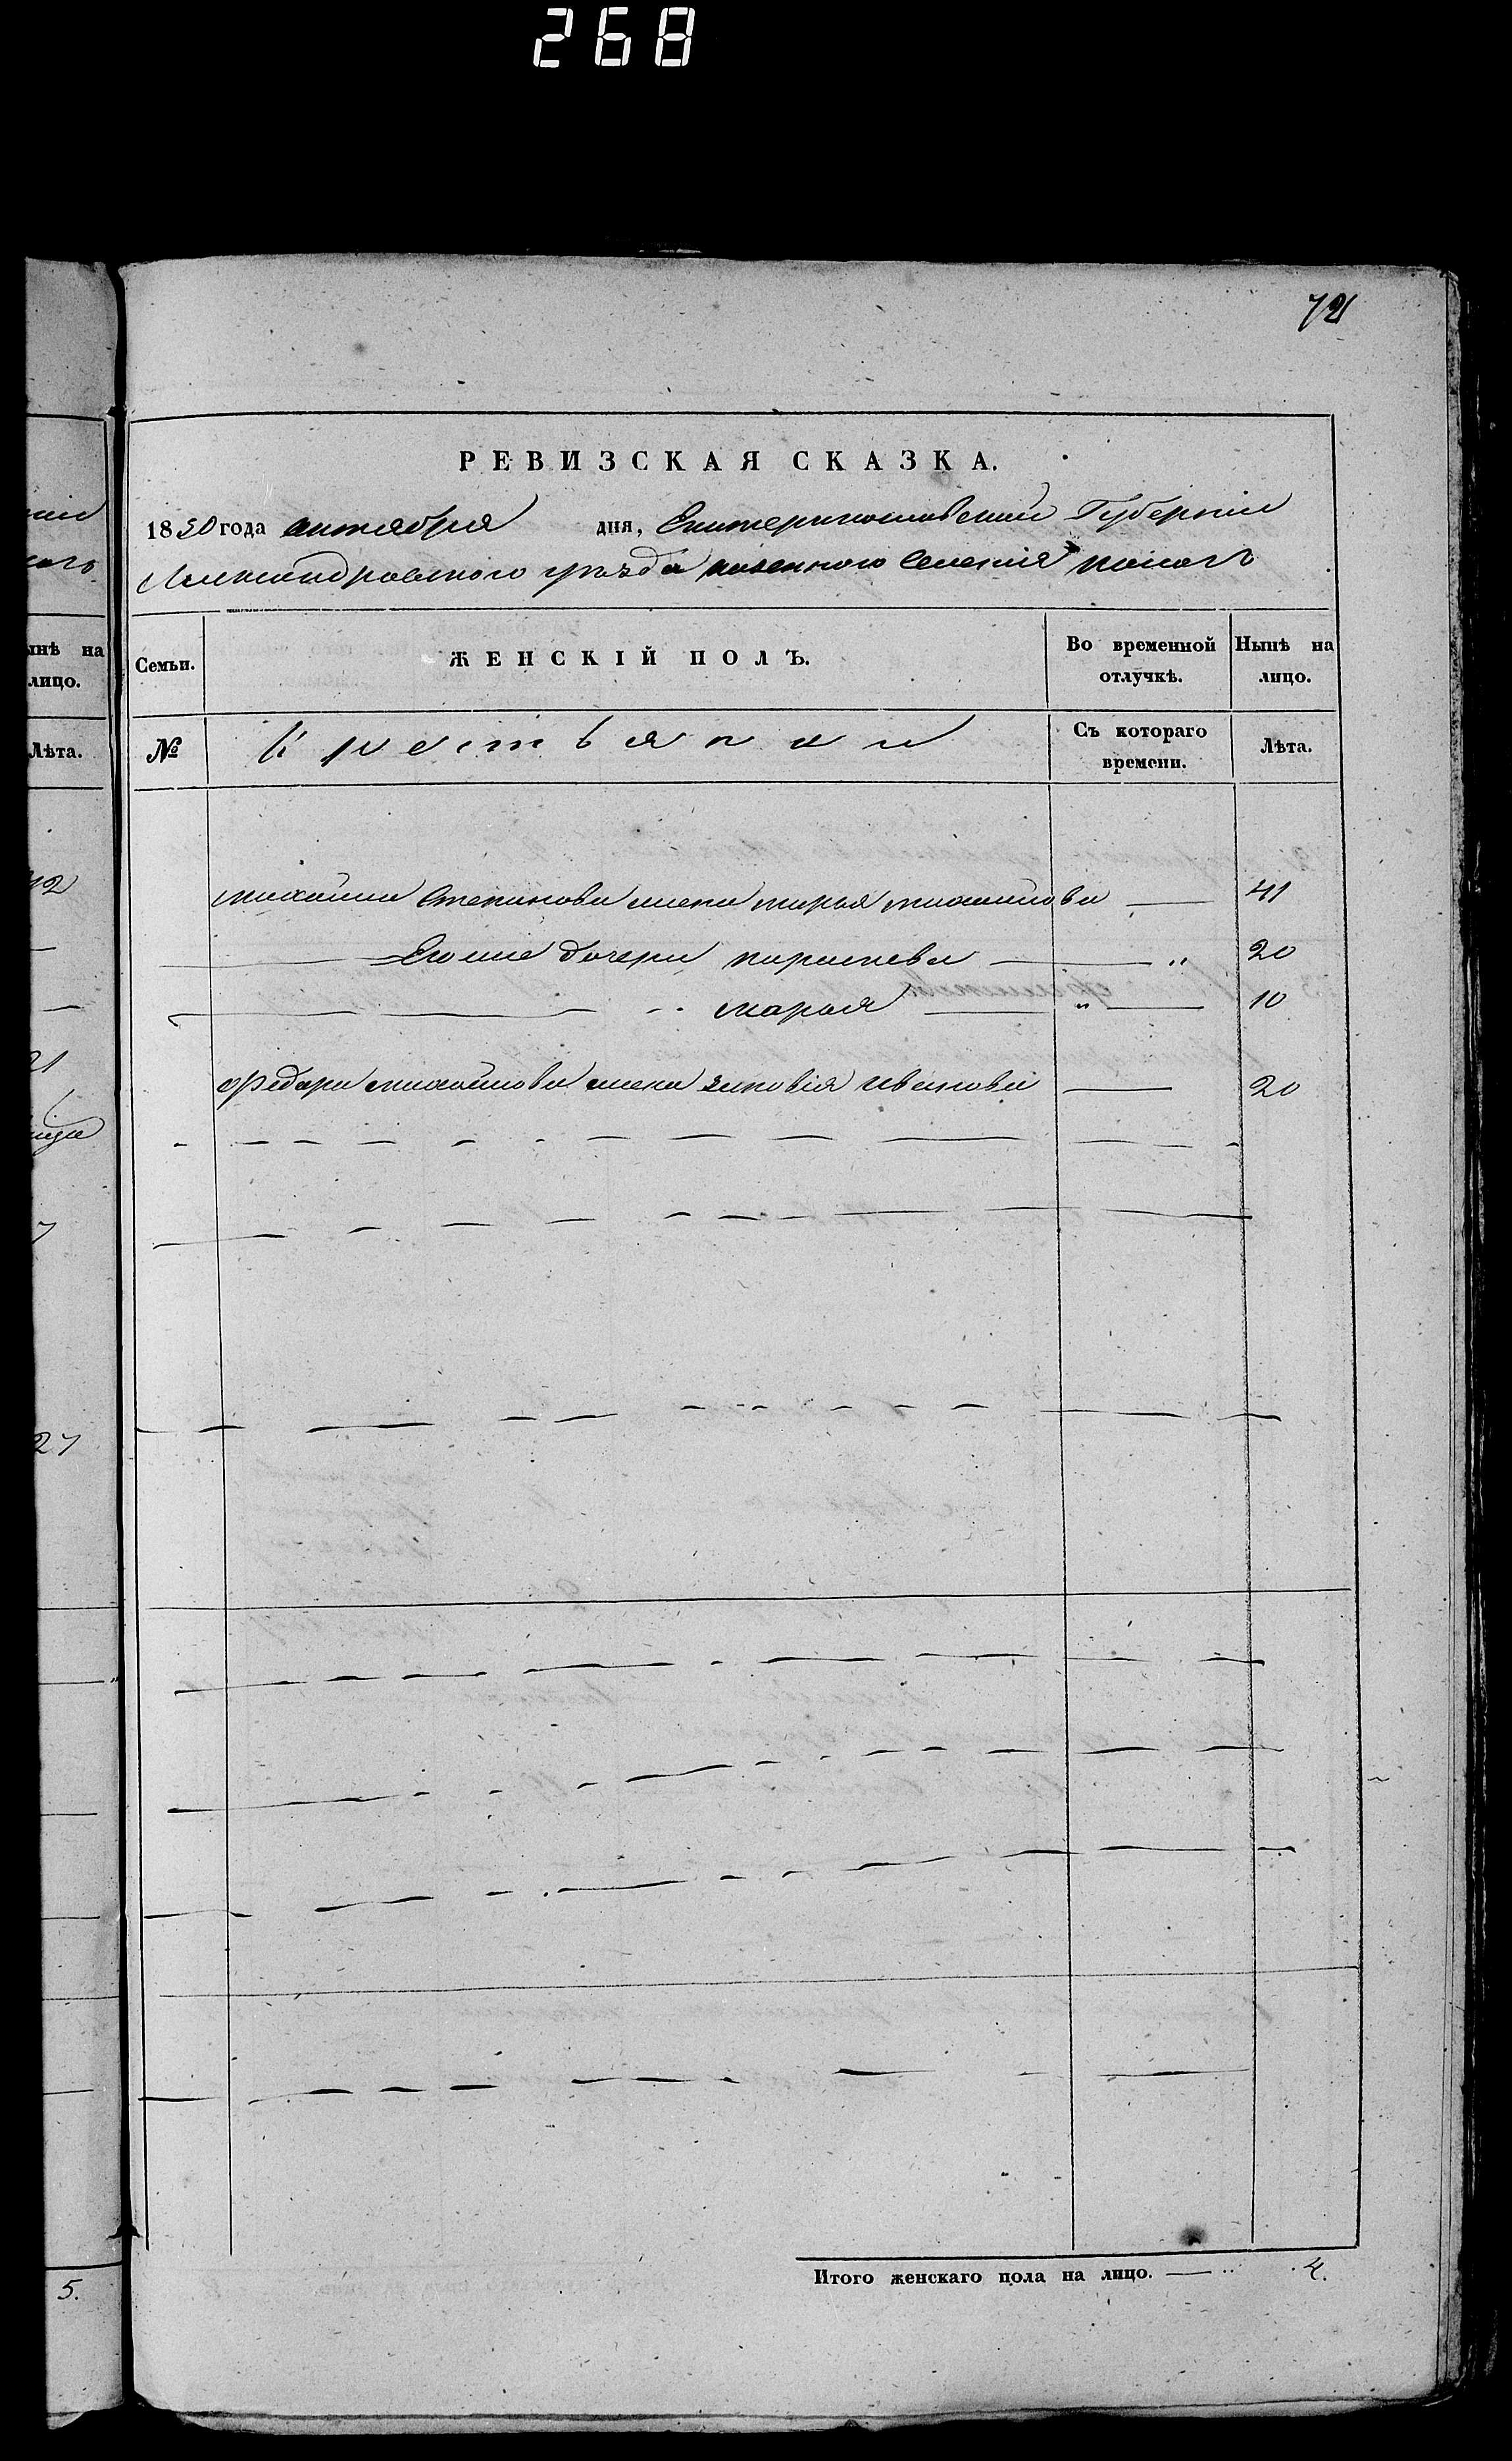 268
72
РЕВИЗСКАЯ СКАЗКА.
1850 года октября дня, Екатеринославской Губерніи
Александровского уезда казенного Селенія
Семьи.
ЖЕНСКІЙ ПОЛЪ.
Во временной отлучкѣ.
Нынѣ на лицо.
№
Крестьянки
Съ котораго времени.
Лѣта.
михаила Степанова жена марья михайлова 41
Егоже дочери парасковья 20
марья 10
Федора михайлова жена зиновія иванова 20
Итого женскаго пола на лицо. 4.
нѣ на
лицо.
Лѣта.
42
21
27
5.